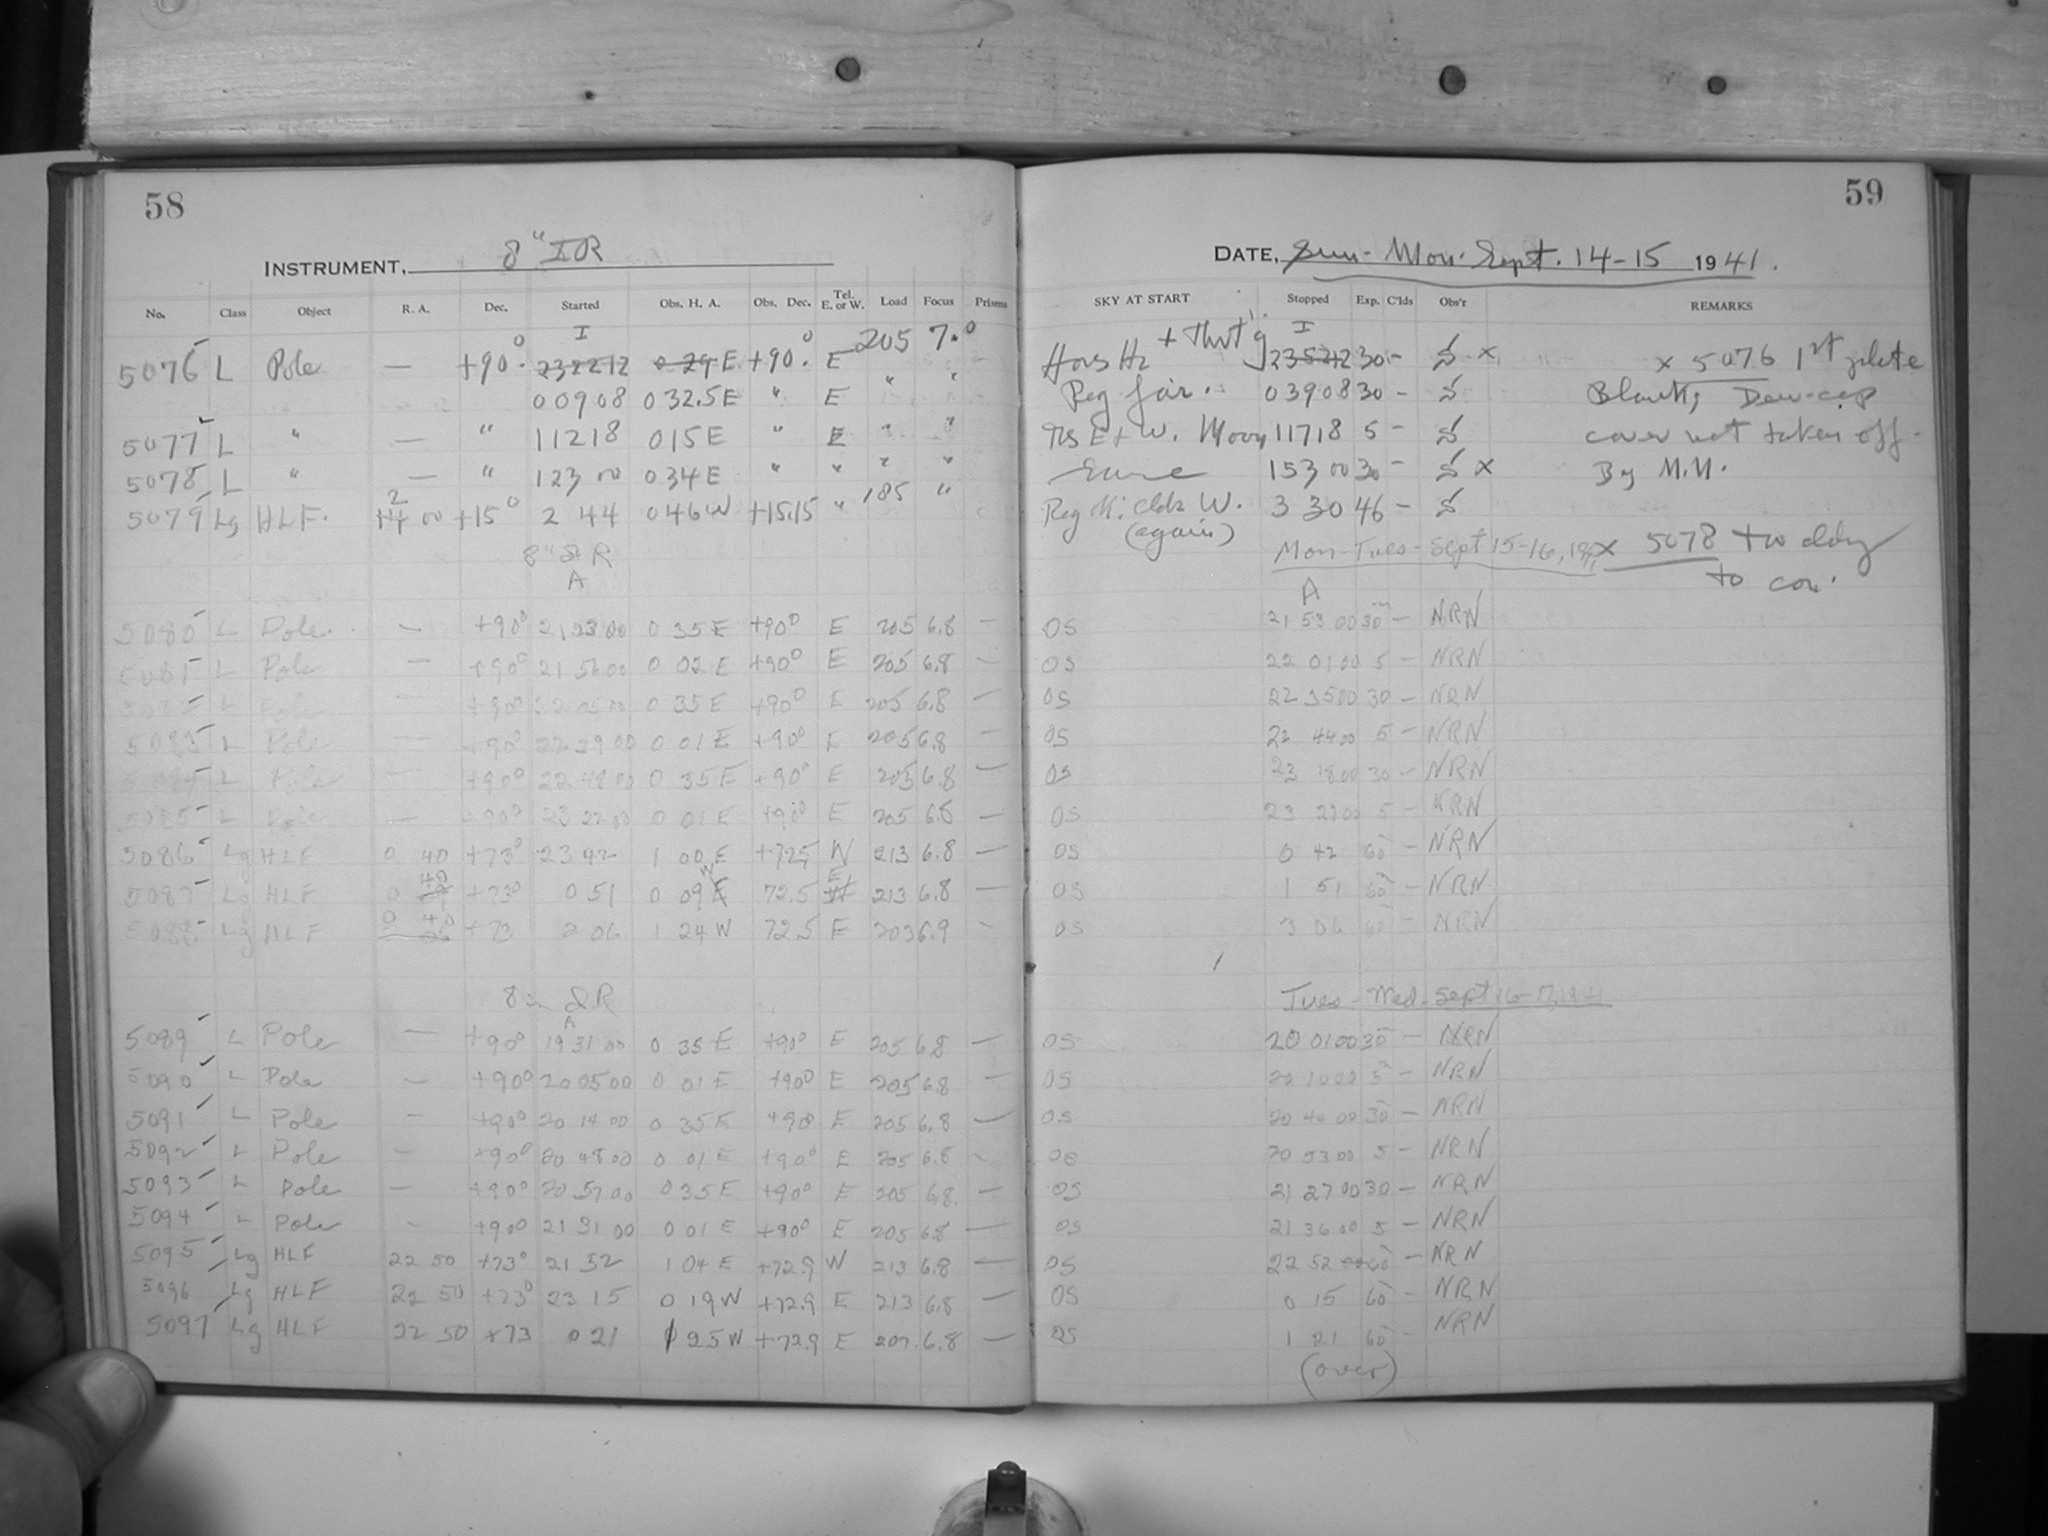 58
59
INSTRUMENT, 8" IR
DATE, Sun-Mon. Sept. 14-15 1941.
No. Class Object R. A. Dec. Started Obs. H. A. Obs. Dec. Tel. E. or W. Load Focus Prisms SKY AT START Stopped Exp. C'lds Obs'r REMARKS
I I
5076 L Pole — +90° 232212 0 29 E +90° E 205 7.0 Hors Hz 235212 30 - S x x 5076 1st plate
00908 032.5E " E " " Reg fair. 03908 30 - S Blank, Dew-cap
5077 L " — " 11218 015E " E " " E + W. Moon 11718 5 - S cover not taken off.
5078 L " — " 12300 034E " " " " Same 15300 30 - S x By M.M.
5079 Lg HLF. 2 00 +15° 2 44 046W +15.15 " 185 " W. 3 30 46 - S
(again)
8" IR Mon-Tues- Sept 15-16, x 5078 two
A A to
5080 L Pole. — +90° 21 23 00 0 35 E +90° E 205 6.8 — OS 21 53 00 30 - NRN
5081 L Pole — +90° 21 56 00 0 02 E +90° E 205 6.8 — OS 22 01 00 5 - NRN
5082 L Pole — +90° 22 05 00 0 35 E +90° E 205 6.8 — OS 22 35 00 30 - NRN
5083 L Pole — +90° 22 39 00 0 01 E +90° E 205 6.8 — OS 22 44 00 5 - NRN
5084 L Pole — +90° 22 48 00 0 35 E +90° E 205 6.8 — OS 23 18 00 30 - NRN
5085 L Pole — +90° 23 22 00 0 01 E +90° E 205 6.8 — OS 23 27 00 5 - NRN
5086 Lg HLF 0 40 +73° 23 42 1 00 E +72.5 W 213 6.8 — OS 0 42 60 - NRN
5087 Lg HLF 0 40 +73° 0 51 0 09 W 72.5 E 213 6.8 — OS 1 51 60 - NRN
5088 Lg HLF 0 40 +73 2 06 1 24 W 72.5 E 203 6.9 — OS 3 06 60 - NRN
8 in IR Tues-Wed. Sept 16-17, 1941
A
5089 L Pole — +90° 19 31 00 0 35 E +90° E 205 6.8 — OS 20 01 00 30 - NRN
5090 L Pole — +90° 20 05 00 0 01 E +90° E 205 6.8 — OS 20 10 00 5 - NRN
5091 L Pole — +90° 20 14 00 0 35 E +90 E 205 6.8 — OS 20 44 00 30 - NRN
5092 L Pole — +90° 20 48 00 0 01 E +90° E 205 6.8 - OS 20 53 00 5 - NRN
5093 L Pole — +90° 20 57 00 0 35 E +90° E 205 6.8. — OS 21 27 00 30 - NRN
5094 L Pole - +90 21 31 00 0 01 E +90° E 205 6.8 — OS 21 36 00 5 - NRN
5095 Lg HLF 22 50 +73° 21 52 1 04 E +72.9 W 213 6.8 — OS 22 52 60 - NRN
5096 Lg HLF 22 50 +73° 23 15 0 19 W +72.9 E 213 6.8 — OS 0 15 60 - NRN
5097 Lg HLF 22 50 +73 0 21 1 25 W +72.9 E 207 6.8 — OS 1 21 60 - NRN
(over)